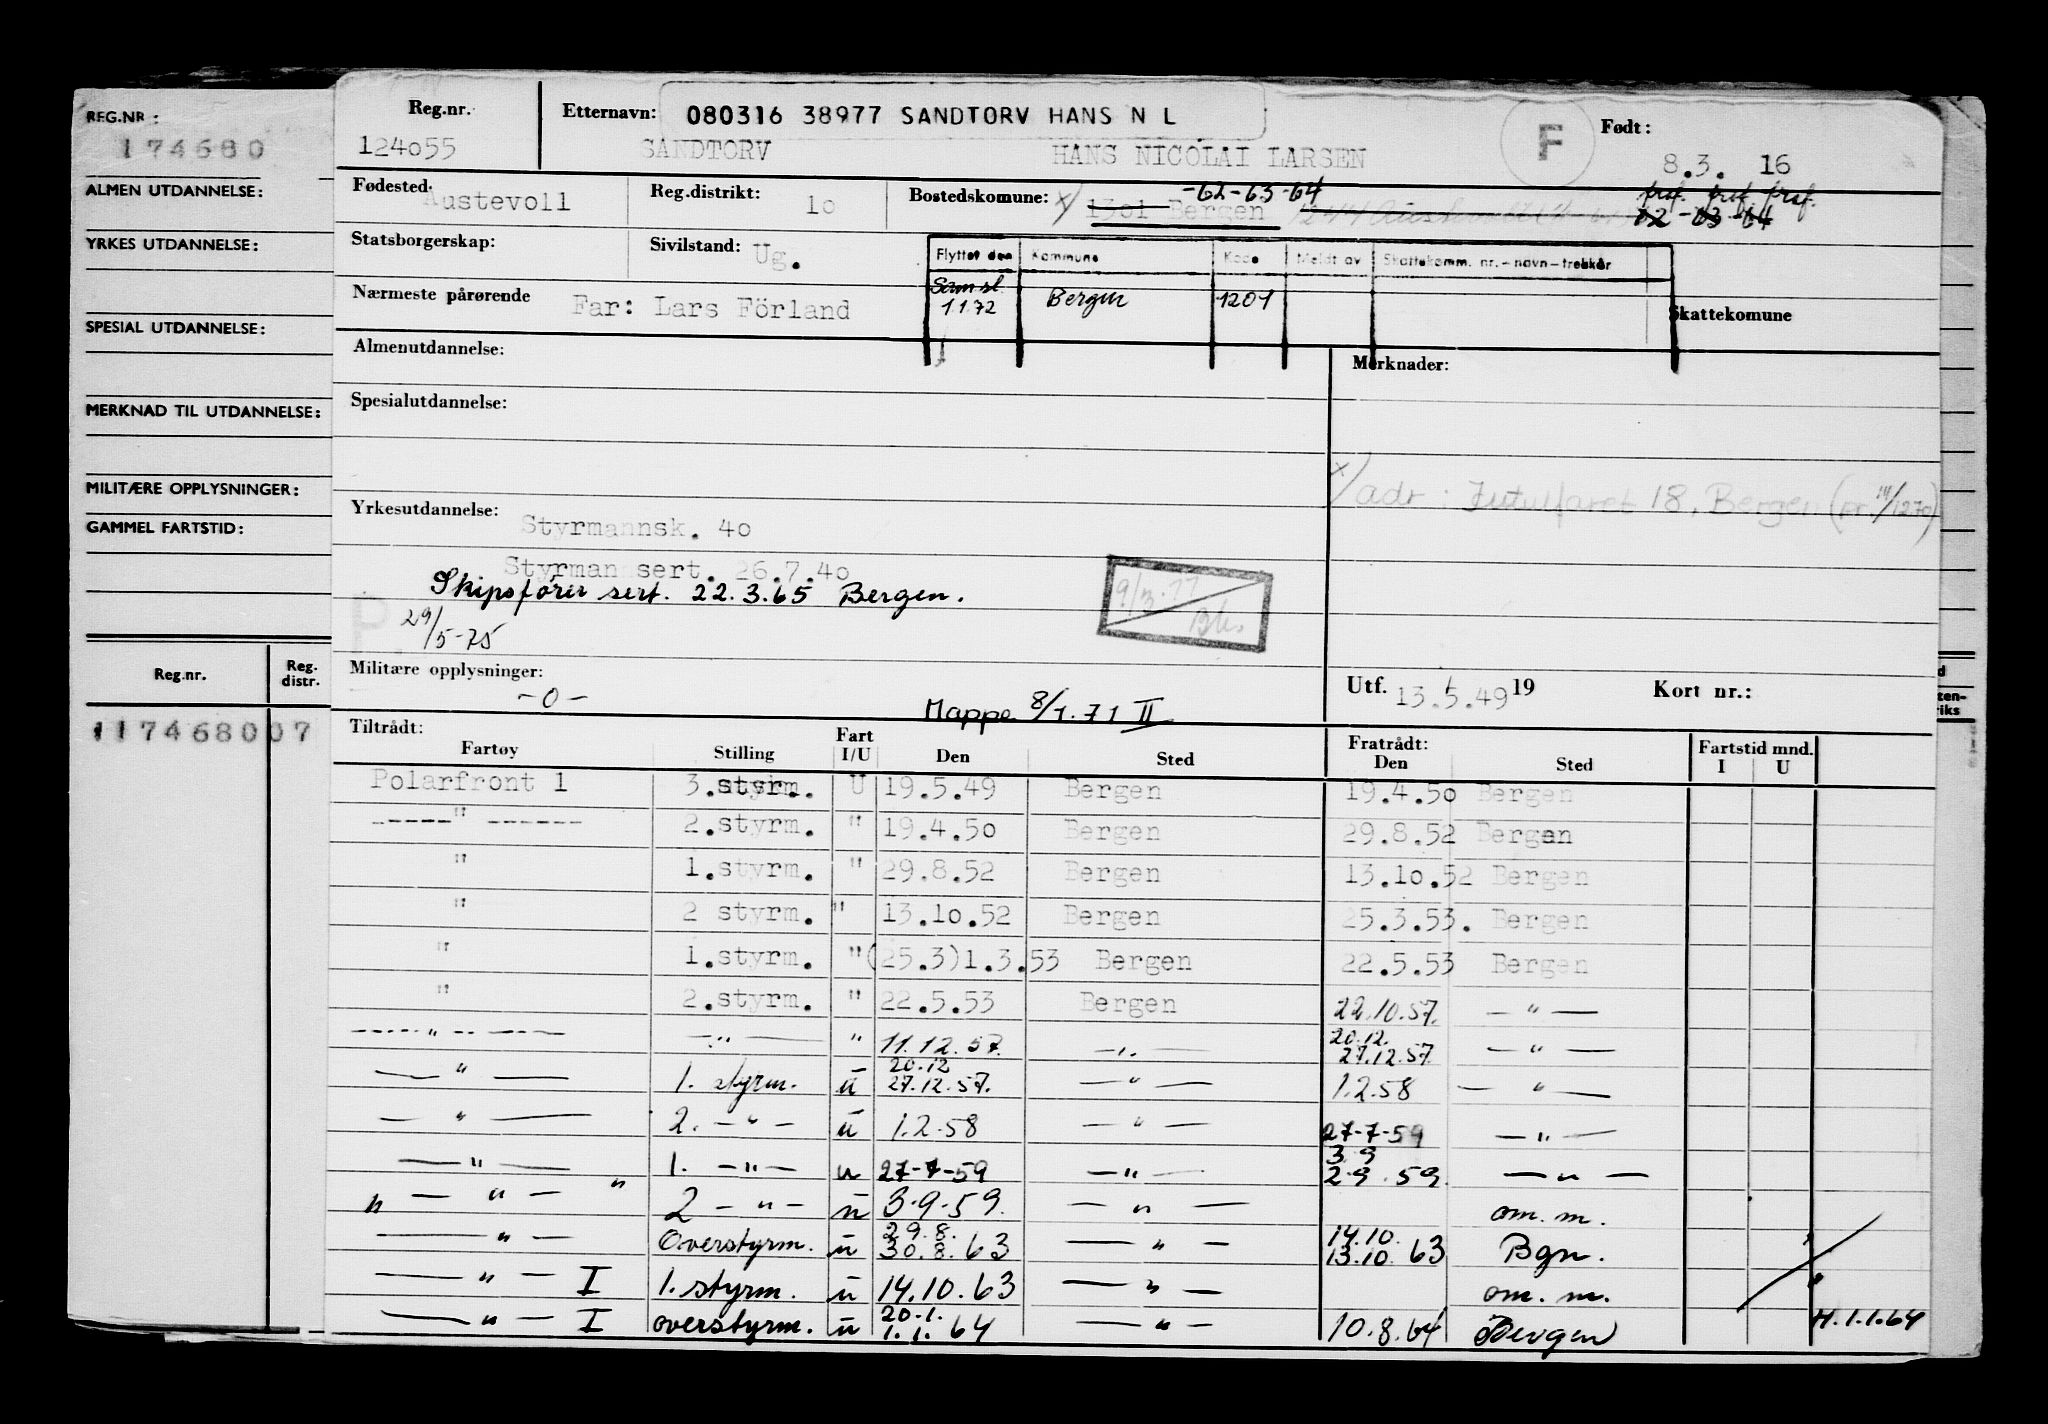 REG.NR :
174680
ALMEN UTDANNELSE:
YRKES UTDANNELSE:
SPESIAL UTDANNELSE:
MERKNAD TIL UTDANNELSE:
MILITÆRE OPPLYSNINGER:
GAMMEL FARTSTID:
Reg.nr. Reg. distr.
117468007
Reg.nr. Etternavn: 080316 38977 SANDTORV HANS N L F Født:
124055 SANDTORV HANS NICOLAI LARSEN 8.3. 16
Fødested: Austevoll Reg.distrikt: 10 Bostedskomune: x) 1301 Bergen -62-63-64 prf. prf. prf.
62 -63 -64
Statsborgerskap: Sivilstand: Ug.
Flyttet den Kommune Kode Meldt av Skattekomm. nr.-navn-trekkår
Nærmeste pårørende Far: Lars Förland Sam.sl. 1.1.72 Bergen 1201 Skattekomune
Almenutdannelse: Merknader:
Spesialutdannelse:
x) adr: Jutulfaret 18, Bergen (pr.
Yrkesutdannelse: Styrmannsk. 40
Styrmannsert. 26.7.40
Skipsfører sert. 22.3.65 Bergen.
29/5-75
9/3.77
P
Militære opplysninger: Utf. 13.5.49 19 Kort nr.:
-0- Mappe 8/1.71 II
Tiltrådt: Fratrådt: Fartstid mnd.
Fartøy Stilling Fart I/U Den Sted Den Sted I U
Polarfront 1 3.styrm. U 19.5.49 Bergen 19.4.50 Bergen
-----"------ 2.styrm. " 19.4.50 Bergen 29.8.52 Bergen
" 1.styrm. " 29.8.52 Bergen 13.10.52 Bergen
" 2 styrm. " 13.10.52 Bergen 25.3.53. Bergen
" 1.styrm. " (25.3)1.3.53 Bergen 22.5.53 Bergen
" 2.styrm. " 22.5.53 Bergen 22.10.57. — " —
-----"-- ----- —"— " 11.12.57. —"— 20.12. 27.12.57. — " —
— " — 1. styrm. u 20.12 27.12.57. — " — 1.2.58 — " —
— " — 2. — " — u 1.2.58 — " — 27-7-59 — " —
— " — 1. — " — u 27-7-59 — " — 3.9 2.9.59. — " —
" — " — " 2 — " — u 3.9.59. — " — om. m.
— " — Overstyrm. u 29.8. 30.8.63 — " — 14.10. 13.10.63 Bgn.
— " — I 1. styrm. u 14.10.63 — " — om. m.
— " — I overstyrm. u 20.1. 1.1.64 — " — 10.8.64 Bergen H.1.1.64